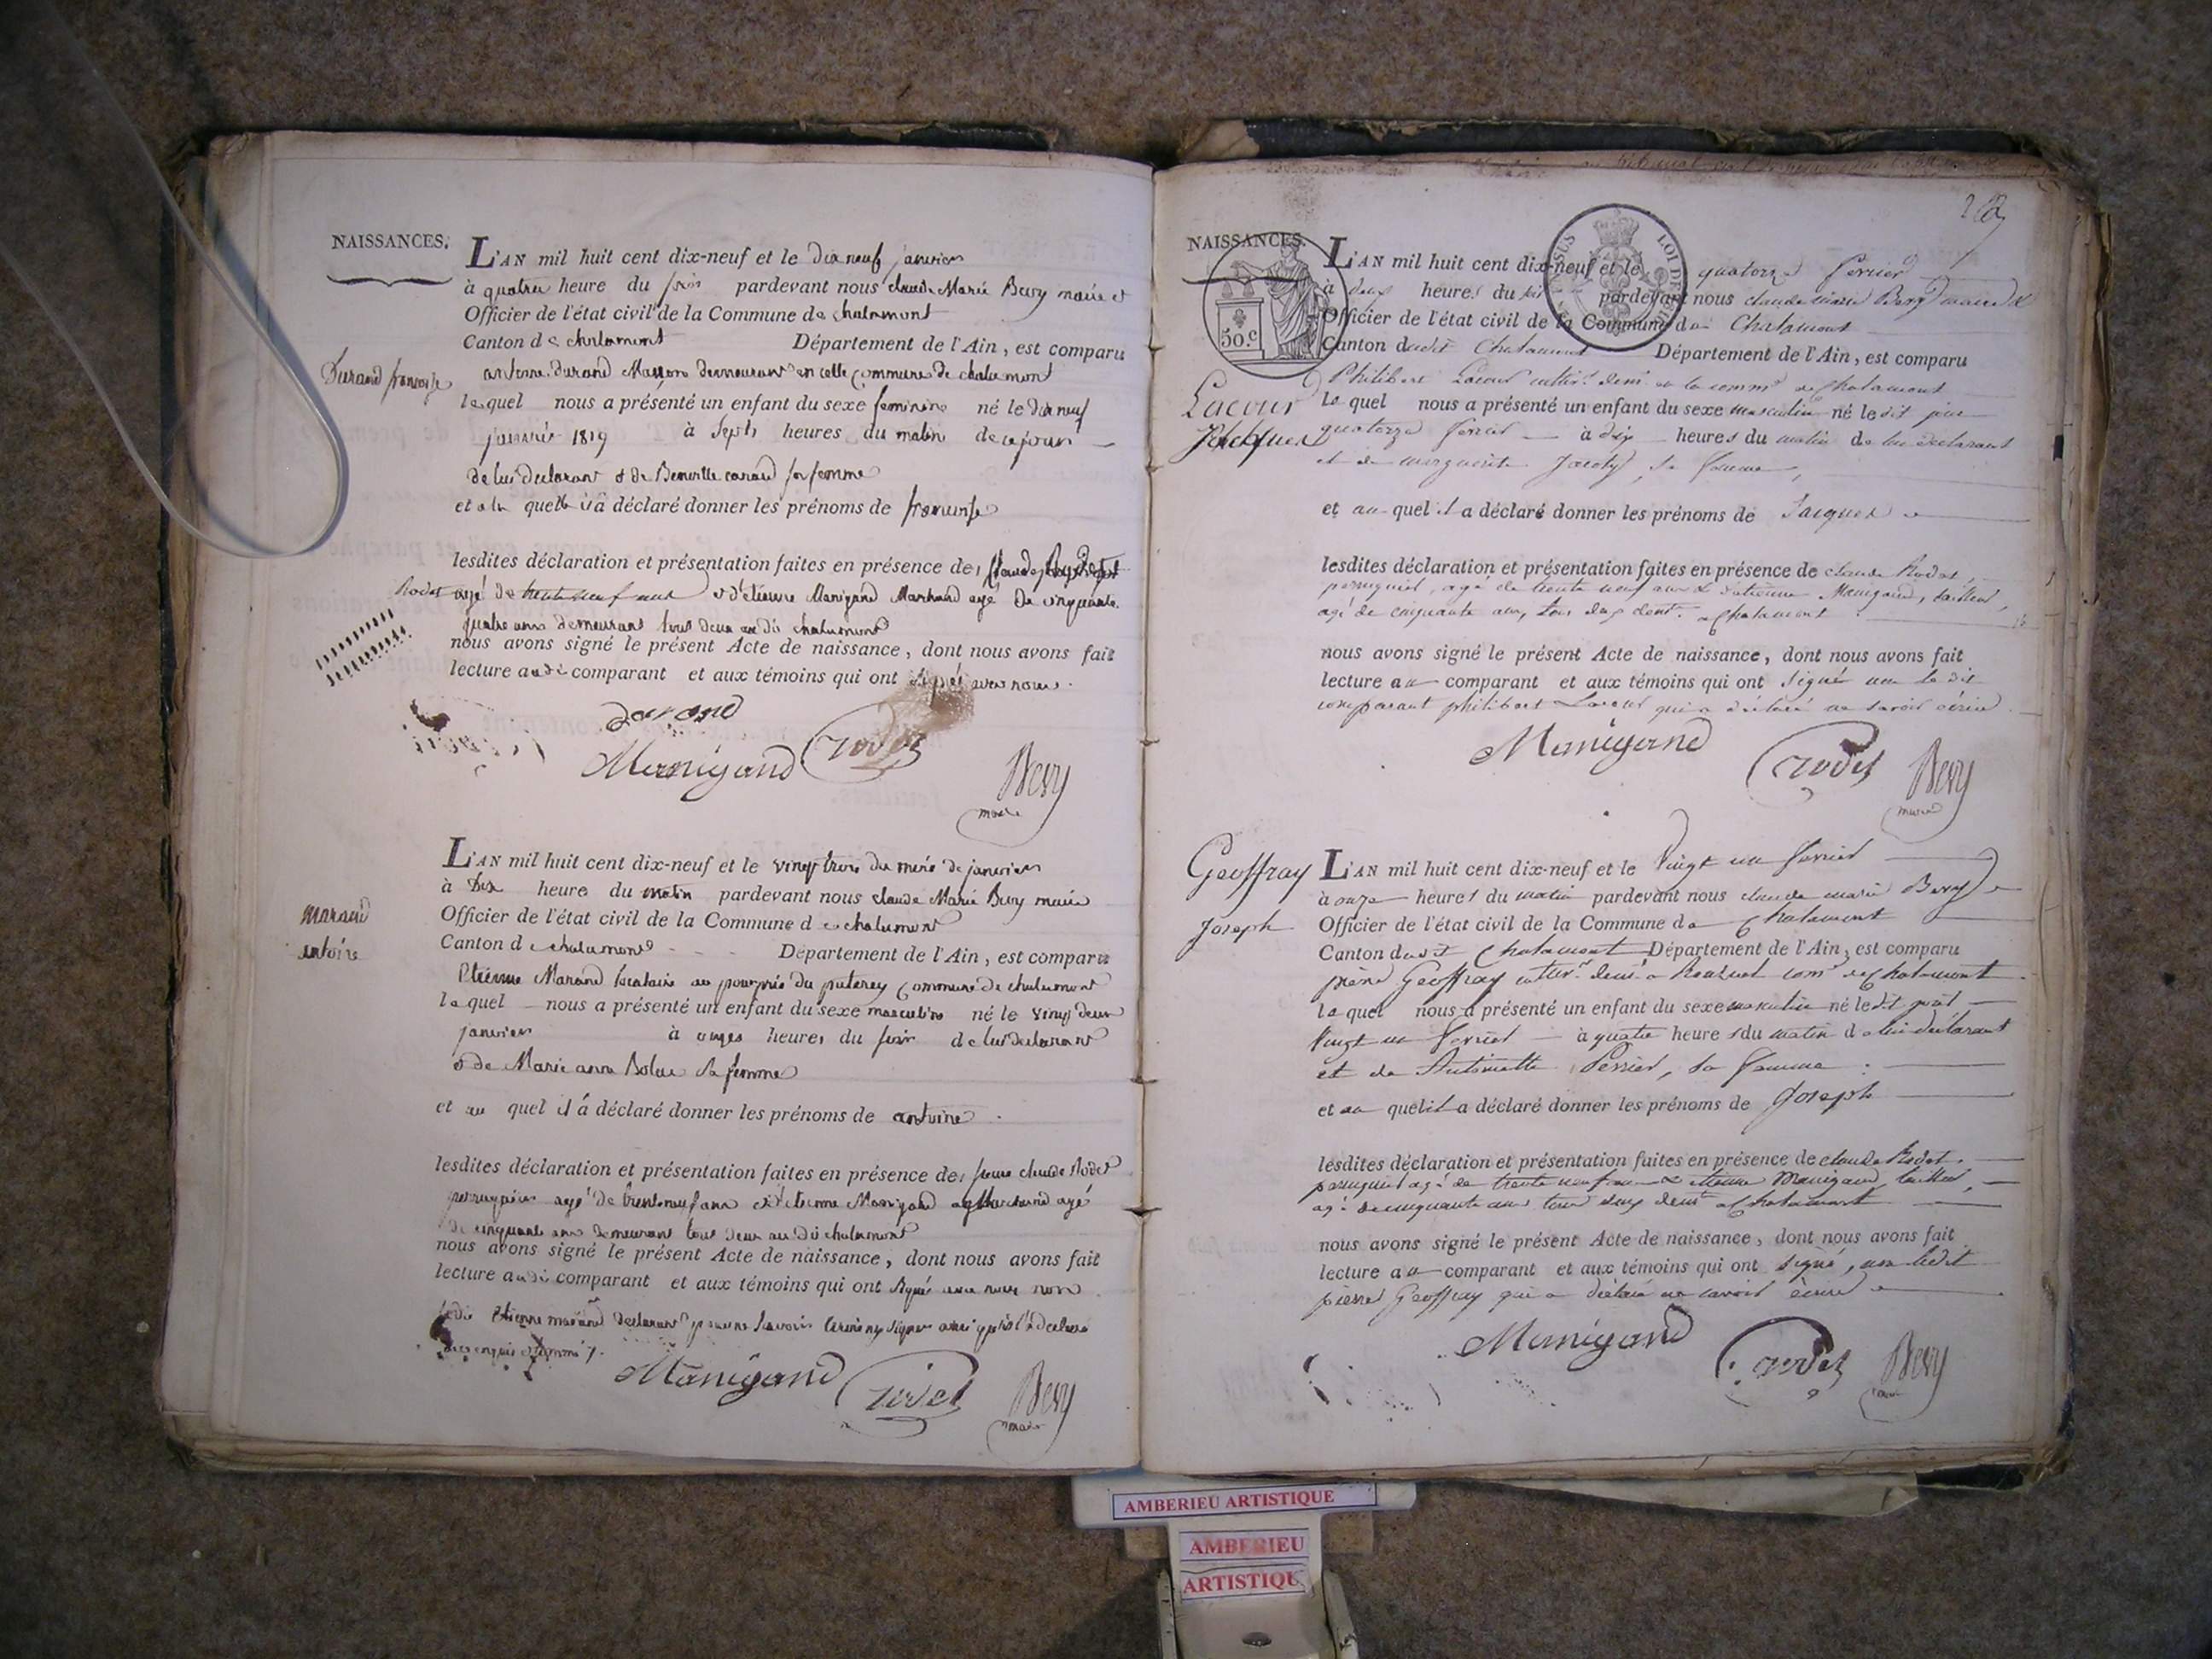 NAISSANCES.
L'AN mil huit cent dix-neuf et le dix neuf janvier
à quatre heure du soir pardevant nous claude Marie Bevy maire et
Officier de l'état civil de la Commune de chalamont
Canton de chalamont Département de l'Ain, est comparu
Durand françoise
antoine durand Masson demeurant en cette Commune de chalamont
lequel nous a présenté un enfant du sexe feminine né le dix neuf
janvier 1819 à Sept heures du matin de ce jour
de lui declarant & de Benoitte sa femme
et a la quelle il a déclaré donner les prénoms de francoise
lesdites déclaration et présentation faites en présence de
Rodet agé de trente neuf ans & d'etienne Manigand Marchand agé de cinquante
quatre ans demeurant tous deux au dit chalamont
nous avons signé le présent Acte de naissance, dont nous avons fait
lecture audit comparant et aux témoins qui ont signé avec nous.
durand
Manigand rodet
Bevy
maire
L'AN mil huit cent dix-neuf et le vingt trois du mois de janvier
à Dix heure du matin pardevant nous claude Marie Bevy maire
marand
antoine
Officier de l'état civil de la Commune de chalamont
Canton de chalamont Département de l'Ain, est comparu
Etienne Marand locataire au Commune de chalamont
lequel nous a présenté un enfant du sexe masculin né le vingt deux
janvier à onzes heures du soir de lui declarant
& de Marie anne sa femme
et au quel il a déclaré donner les prénoms de antoine
lesdites déclaration et présentation faites en présence de claude Rodet
perruquier agé de trente neuf ans & d'etienne Manigand Marchand agé
de cinquante ans demeurant tous deux au dit chalamont
nous avons signé le présent Acte de naissance, dont nous avons fait
lecture audit comparant et aux témoins qui ont signé avec nous non
ledit Etienne marand declarant pour ne savoir signer
Manigand rodet Bevy
maire
NAISSANCES.
50.c
L'AN mil huit cent dix-neuf et le quatorze fevrier
à deux heures du soir pardevant nous claude marie Bevy maire &
Officier de l'état civil de la Commune de Chalamont
Canton dudit Chalamont Département de l'Ain, est comparu
Lacour
Jacques
Philibert Lacour cultivr. demt. en la commune de Chalamont
lequel nous a présenté un enfant du sexe masculin né ledit jour
quatorze fevrier à dix heures du matin de lui declarant
et de marguerite sa femme,
et au quel il a déclaré donner les prénoms de Jacques
lesdites déclaration et présentation faites en présence de claude Rodet,
perruquier, agé de trente neuf ans & d'etienne Manigand, tailleur,
agé de cinquante ans, tous deux demt. a Chalamont
nous avons signé le présent Acte de naissance, dont nous avons fait
lecture au comparant et aux témoins qui ont signé non le dit
comparant philibert Lacour qui a déclaré ne savoir écrire
Manigand
rodet Bevy
maire
Geoffray
Joseph
L'AN mil huit cent dix-neuf et le Vingt un fevrier
à onze heures du matin pardevant nous claude marie Bevy
Officier de l'état civil de la Commune de Chalamont
Canton dudit Chalamont Département de l'Ain, est comparu
pierre Geoffray cultivr. demt. a comn. de Chalamont
lequel nous a présenté un enfant du sexe masculin né ledit jour
Vingt un fevrier à quatre heures du matin de lui déclarant
et de Antoinette Perrier, sa femme
et au quel il a déclaré donner les prénoms de Joseph
lesdites déclaration et présentation faites en présence de claude Rodet,
perruquier agé de trente neuf ans & etienne Manigand, tailleur,
agé de cinquante ans tous deux demt. a Chalamont
nous avons signé le présent Acte de naissance, dont nous avons fait
lecture au comparant et aux témoins qui ont signé, non ledit
pierre Geoffray qui a déclaré ne savoir écrire
Manigand
rodet Bevy
AMBERIEU ARTISTIQUE
AMBERIEU
ARTISTIQUE